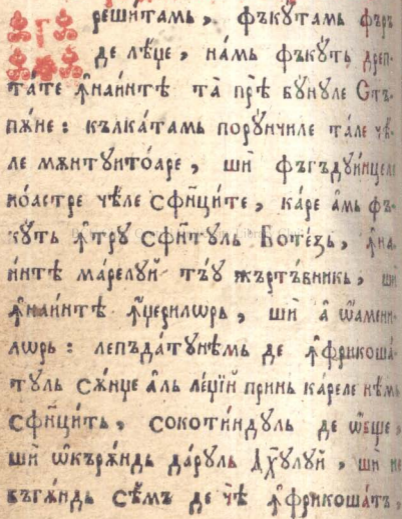 Г решѝтамь, фъкꙋ́тамь фъръ
де лѣ́џе, нꙋ́мь фъкꙋ́ть дреп-
та́те ꙟнаи́нтѣ та̀ прѣ̀ бꙋ́нꙋле Стъ-
пѫ́не: къ́лка́тамь порꙋ́нчиле та́ле чѣ́-
ле мѫнтꙋито́аре, шѝ фъгъдꙋи́нцеле
ноа́стре чѣ́ле сфи́нци́те, ка́ре а́мь фъ-
кꙋ́ть ꙟтрꙋ сфи́нтꙋль Боте́зь, ꙟна-
и́нтѣ ма́релꙋй тъ́ꙋ жъртъ́вникь, шѝ
ꙟнаи́нтѣ ꙟ́џерилѡрь, шѝ а ѡ́амени-
лѡрь: лепъда́тꙋнѣмь де ꙟфрикоша́-
тꙋль сѫ́нџе а́ль ле́џїй принь ка́реле нѣ́мь
сфи́нци́ть, сокоти́ндꙋль де ѡ́бще,
шѝ ѡкъръ́ндь да́рꙋль Дх҃ꙋлꙋй, шѝ не
бъгѫ́ндь сѣ́мъ де чѣ̀ ꙟфрикоша́ть,